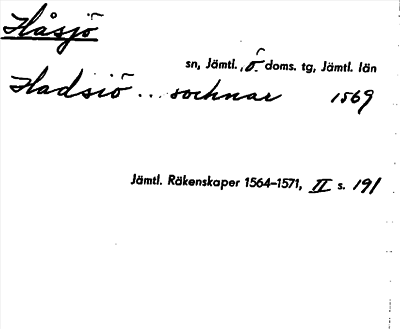 Håsjö
sn, Jämtl., ö. doms. tg, Jämtl. län
Hadsiö ... sochnar 1569
Jämtl. Räkenskaper 1564–1571, II s. 191